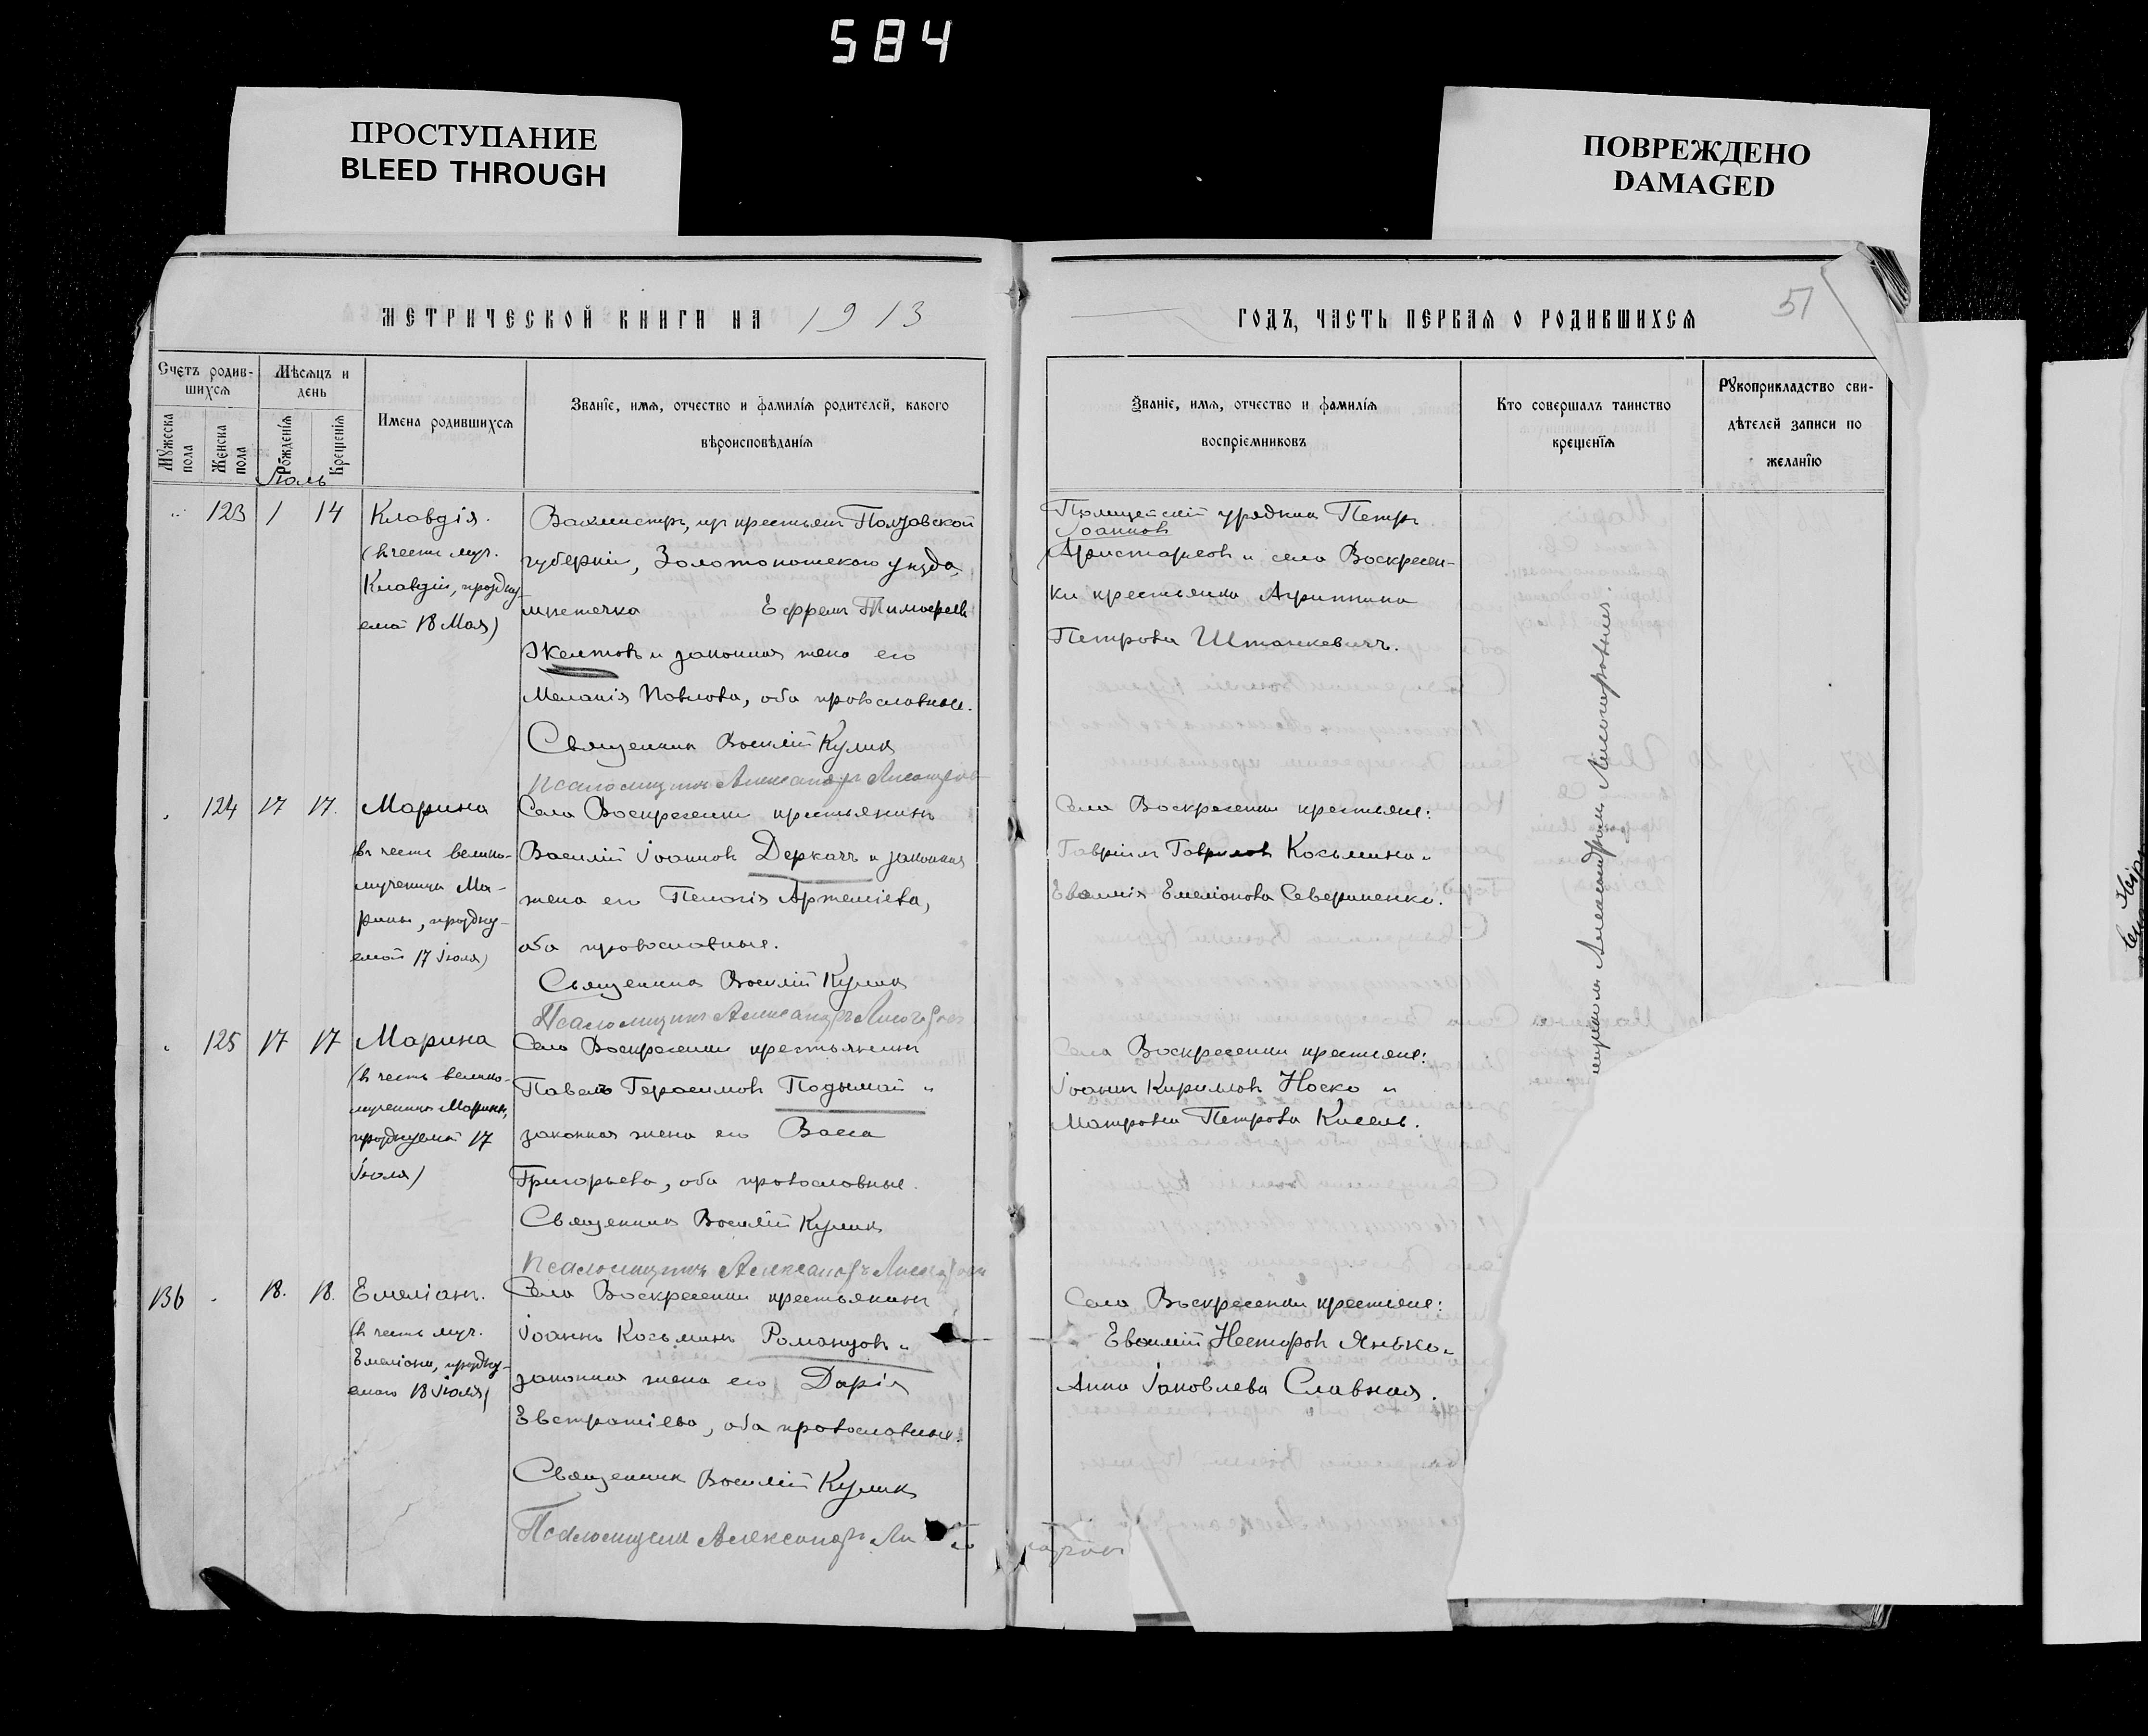 584
ПРОСТУПАНИЕ
BLEED THROUGH
ПОВРЕЖДЕНО
DAMAGED
МЕТРИЧЕСКОЙ КНИГИ НА 1913
ГОДЪ, ЧАСТЬ ПЕРВАЯ О РОДИВШИХСЯ
51
Счетъ родив-
шихся
Мѣсяцъ и
день
Мужеска
пола
Женска
пола
Рожденія
Крещенія
Имена родившихся
Званіе, имя, отчество и фамилія родителей, какого
вѣроисповѣданія
Званіе, имя, отчество и фамилія
воспріемниковъ
Кто совершалъ таинство
крещенія
Рукоприкладство сви-
дѣтелей записи по
желанію
Іюль
123 1 14 Клавдія.
(въ честь муч.
Клавдіи, праздну-
емой 18 Мая)
Вахмистръ, изъ крестьянъ Полтавской
губерніи, Золотоношскаго уѣзда,
мѣстечка Ефремъ Тимофеевъ
Желтовъ и законная жена его
Меланія Павлова, оба православные.
Священникъ Василій Куликъ
Псаломщикъ Александръ
Полицейскій урядникъ Петръ
Іоанновъ
Аристарховъ и села Воскресен-
ки крестьянка Агриппина
Петрова Штанкевичъ.
124 17 17. Марина
(въ честь велико-
мученицы Ма-
рины, праздну-
емой 17 Іюля)
Села Воскресенки крестьянинъ
Василій Іоанновъ Деркачъ и законная
жена его Пелагія Артеміева,
оба православные.
Священникъ Василій Куликъ
Псаломщикъ Александръ
Села Воскресенки крестьяне:
Гавріилъ Гавриловъ Козьминъ и
Евфимія Емеліанова Севериненко.
125 17 17 Марина
(въ честь велико-
мученицы Марины,
празднуемой 17
Іюля)
Села Воскресенки крестьянинъ
Павелъ Герасимовъ Подымай и
законная жена его Васса
Григорьева, оба православные.
Священникъ Василій Куликъ
Псаломщикъ Александръ
Села Воскресенки крестьяне:
Іоаннъ Кирилловъ Носко и
Матрона Петрова Кисель.
136 18. 18. Емеліанъ.
(въ честь муч.
Емеліана, праздну-
емаго 18 Іюля)
Села Воскресенки крестьянинъ
Іоаннъ Козьминъ Романцовъ и
законная жена его Дарія
Евстратіева, оба православные.
Священникъ Василій Куликъ
Псаломщикъ Александръ
Села Воскресенки крестьяне:
Евфимій Несторовъ Янѣко и
Анна Іаковлева Славная.
Александръ